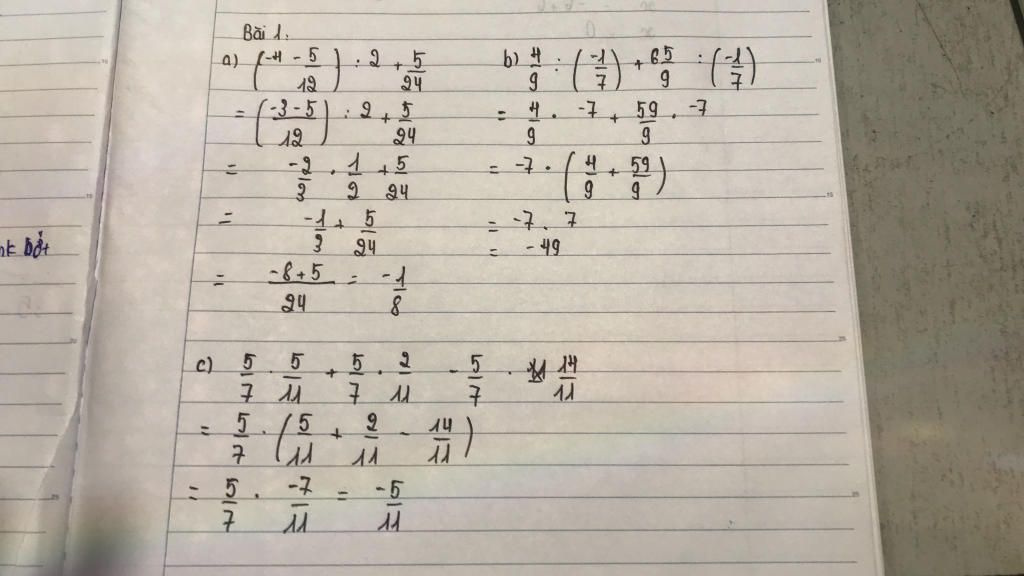 Bài 1.
a) (-4 - 5/12) : 2 + 5/24
= (-3 - 5/12) : 2 + 5/24
= -2/3 · 1/2 + 5/24
= -1/3 + 5/24
= -8+5/24 = -1/8
b) 4/9 : (-1/7) + 65/9 : (-1/7)
= 4/9 · -7 + 59/9 · -7
= -7 · (4/9 + 59/9)
= -7 . 7
= -49
c) 5/7 · 5/11 + 5/7 · 2/11 - 5/7 · 14/11
= 5/7 · (5/11 + 2/11 - 14/11)
= 5/7 · -7/11 = -5/11